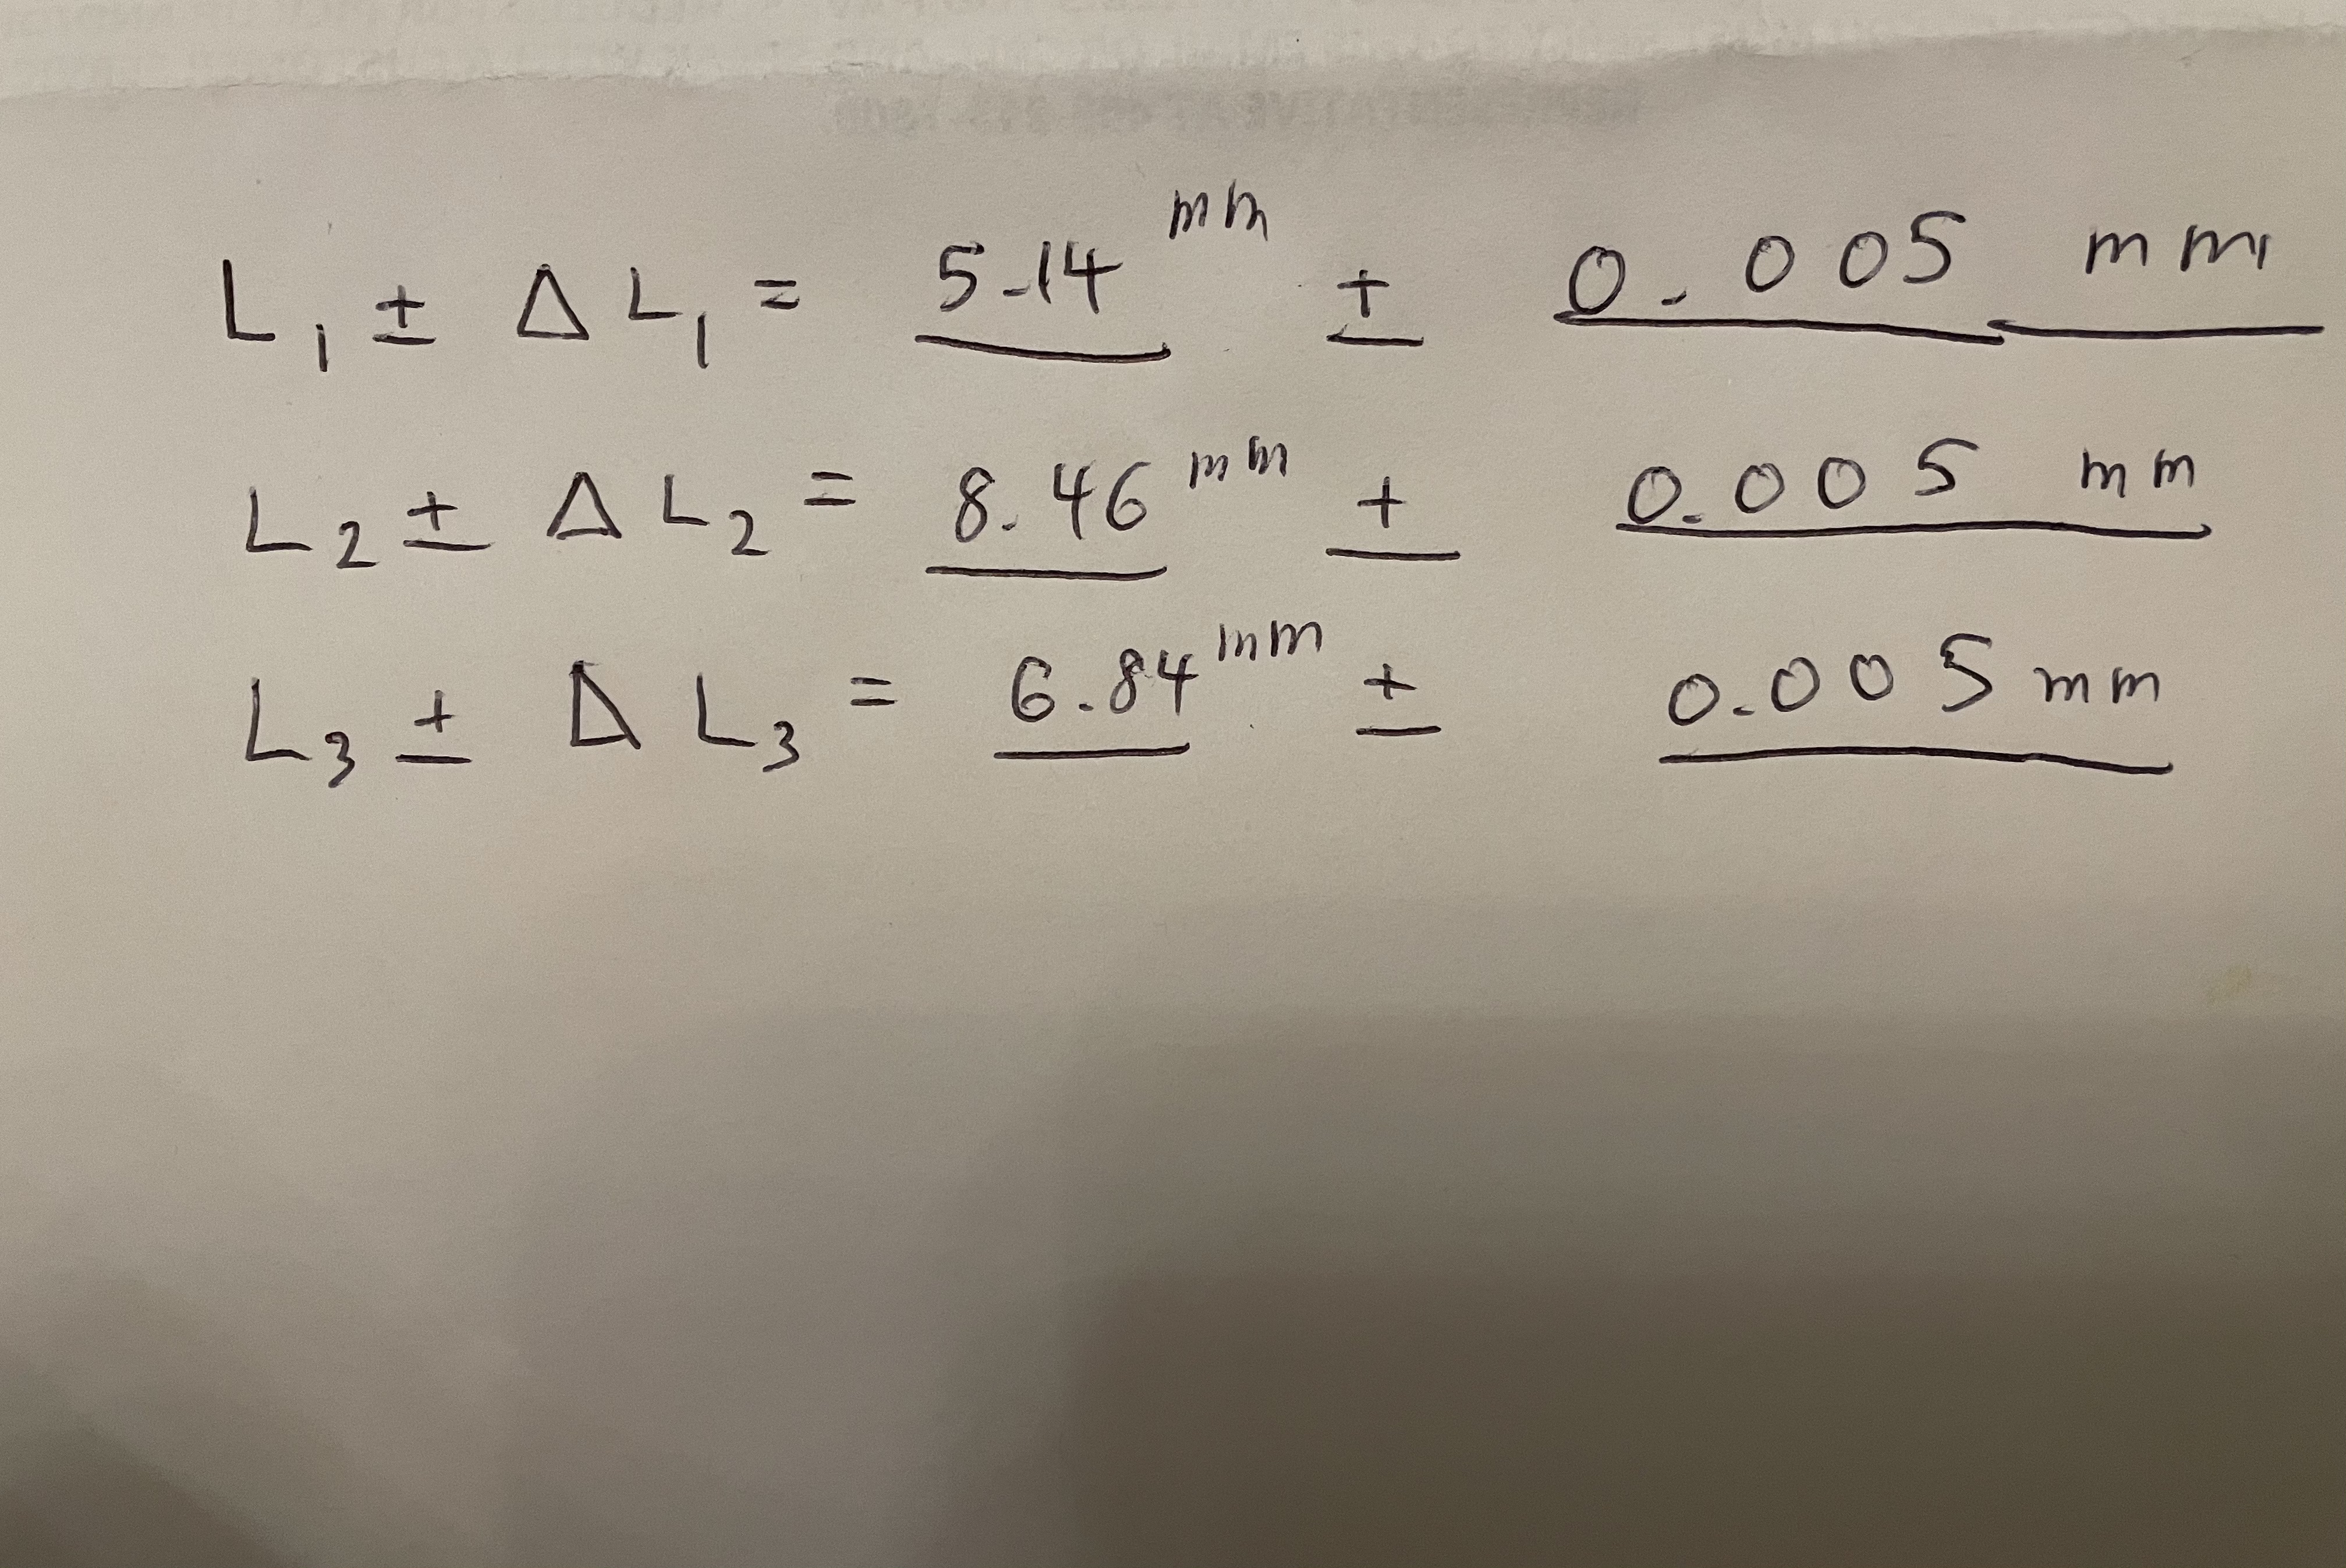 L₁ ± ΔL₁ = 5.14 mm ± 0.005 mm
L₂ ± ΔL₂ = 8.46 mm ± 0.005 mm
L₃ ± ΔL₃ = 6.84 mm ± 0.005 mm